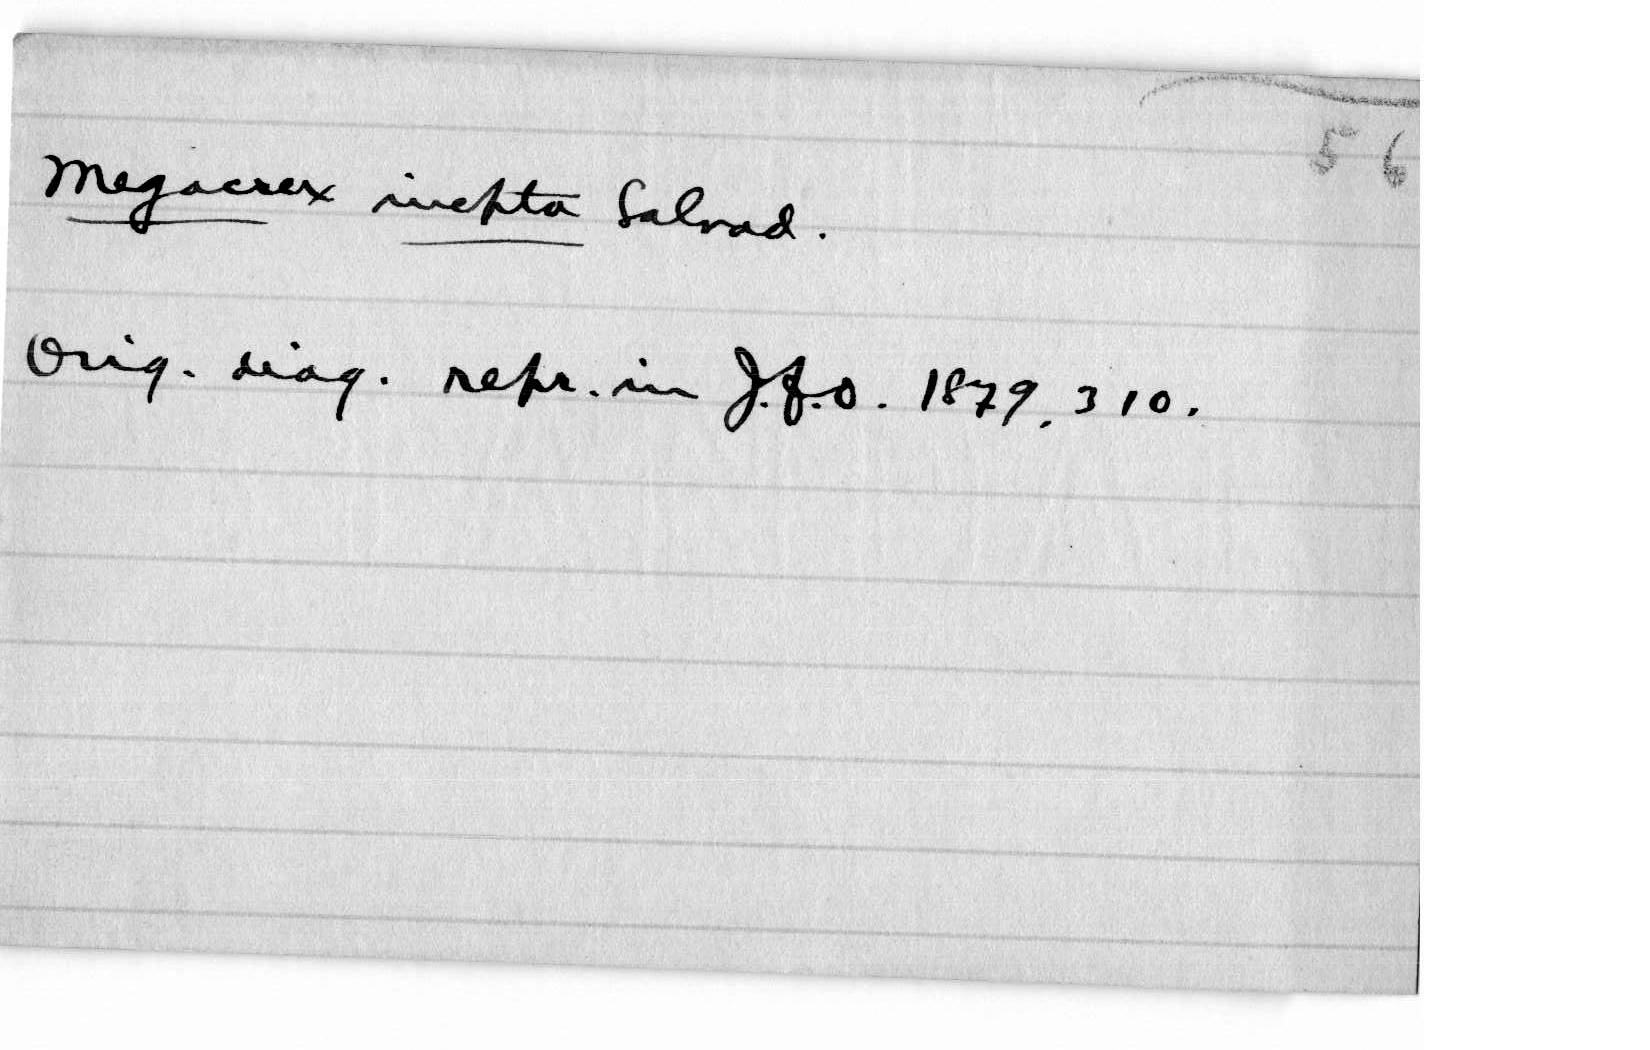 56
Megacrex inepta Salvad.
Orig. diag. repr. in J.f.O. 1879, 310.